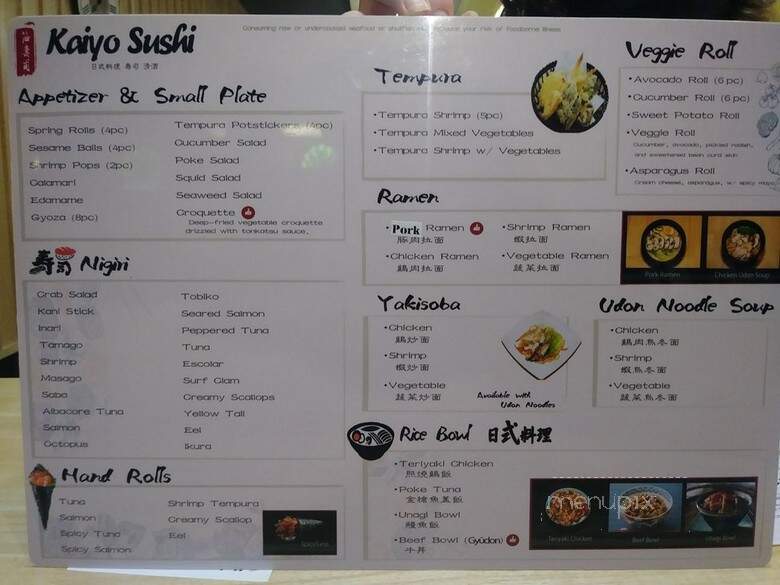 Kaiyo Sushi
日式料理 寿司 清酒
Consuming raw or undercooked seafood or shellfish may increase your risk of foodborne illness
Appetizer & Small Plate
Spring Rolls (4pc)
Sesame Balls (4pc)
Shrimp Pops (2pc)
Calamari
Edamame
Gyoza (8pc)
Tempura Potstickers (4pc)
Cucumber Salad
Poke Salad
Squid Salad
Seaweed Salad
Croquette
Deep-fried vegetable croquette
drizzled with tonkatsu sauce.
寿司 Nigiri
Crab Salad
Kani Stick
Inari
Tamago
Shrimp
Masago
Saba
Albacore Tuna
Salmon
Octopus
Tobiko
Seared Salmon
Peppered Tuna
Tuna
Escolar
Surf Clam
Creamy Scallops
Yellow Tail
Eel
Ikura
Hand Rolls
Tuna
Salmon
Spicy Tuna
Spicy Salmon
Shrimp Tempura
Creamy Scallop
Eel
Tempura
•Tempura Shrimp (5pc)
•Tempura Mixed Vegetables
•Tempura Shrimp w/ Vegetables
Veggie Roll
•Avocado Roll (6 pc)
•Cucumber Roll (6 pc)
•Sweet Potato Roll
•Veggie Roll
Cucumber, avocado, pickled radish,
and sweetened bean curd skin
•Asparagus Roll
Cream cheese, asparagus, w/ spicy mayo
Ramen
•Pork Ramen
豚肉拉面
•Chicken Ramen
鷄肉拉面
•Shrimp Ramen
蝦拉面
•Vegetable Ramen
蔬菜拉面
Pork Ramen
Chicken Udon Soup
Yakisoba
•Chicken
鷄炒面
•Shrimp
蝦炒面
•Vegetable
蔬菜炒面
Available with
Udon Noodles
Udon Noodle Soup
•Chicken
鷄肉烏冬面
•Shrimp
蝦烏冬面
•Vegetable
蔬菜烏冬面
Rice Bowl 日式料理
•Teriyaki Chicken
照燒鷄飯
•Poke Tuna
金槍魚蓋飯
•Unagi Bowl
鰻魚飯
•Beef Bowl (Gyūdon)
牛丼
Teriyaki Chicken
Beef Bowl
Unagi Bowl
menupix